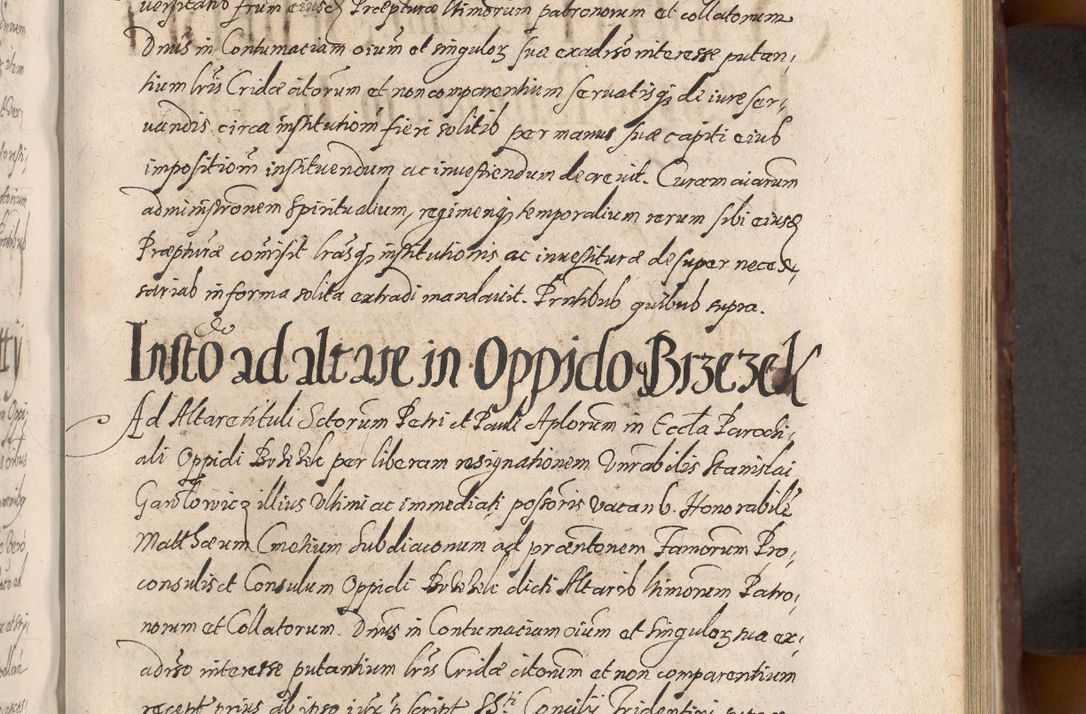 versitatis frum eiusdꝫ Præpturæ ltimorum patronorum et collatorum
Dnus in Contumaciam oium et singuloꝝ sua ex adrso interesse putan,
tium lris Cridæ citorum et non comparentium servatisqꝫ de iure ser,
vandis circa institutiom fieri solitis per manus suæ capiti eius
impositiom instituendum ac investiendum decrevit. Curam aiarum
administronem spiritualium, regimenqꝫ temporalium rerum sibi eiusdꝫ
Præpturæ comisit lrasqꝫ institutionis ac investituræ desuper neces,
sarias in forma solita extradi mandavit. Pntibus quibus supra.
Insto ad altare in Oppido Brzezek
Ad Altare tituli Sctorum Petri et Pauli Aplorum in Eccla Parochi,
ali Oppidi Brzezek per liberam resignationem Vnrabilis Stanislai
Gawlowicz illius Vltimi ac immediati possoris vacans. Honorabile
Matthæum Cnelium Subdiaconum ad præntonem Famorum Pro,
consulis et Consulum Oppidi Brzezek dicti Altaris ltimorum Patro,
norum et Collatorum. Dnus in Contumaciam oium et singuloꝝ sua ex,
adrso interesse putantium lris Cridæ citorum et non comparentium
recept prius ab ipso iuxta script SSti Concilij Tridentini